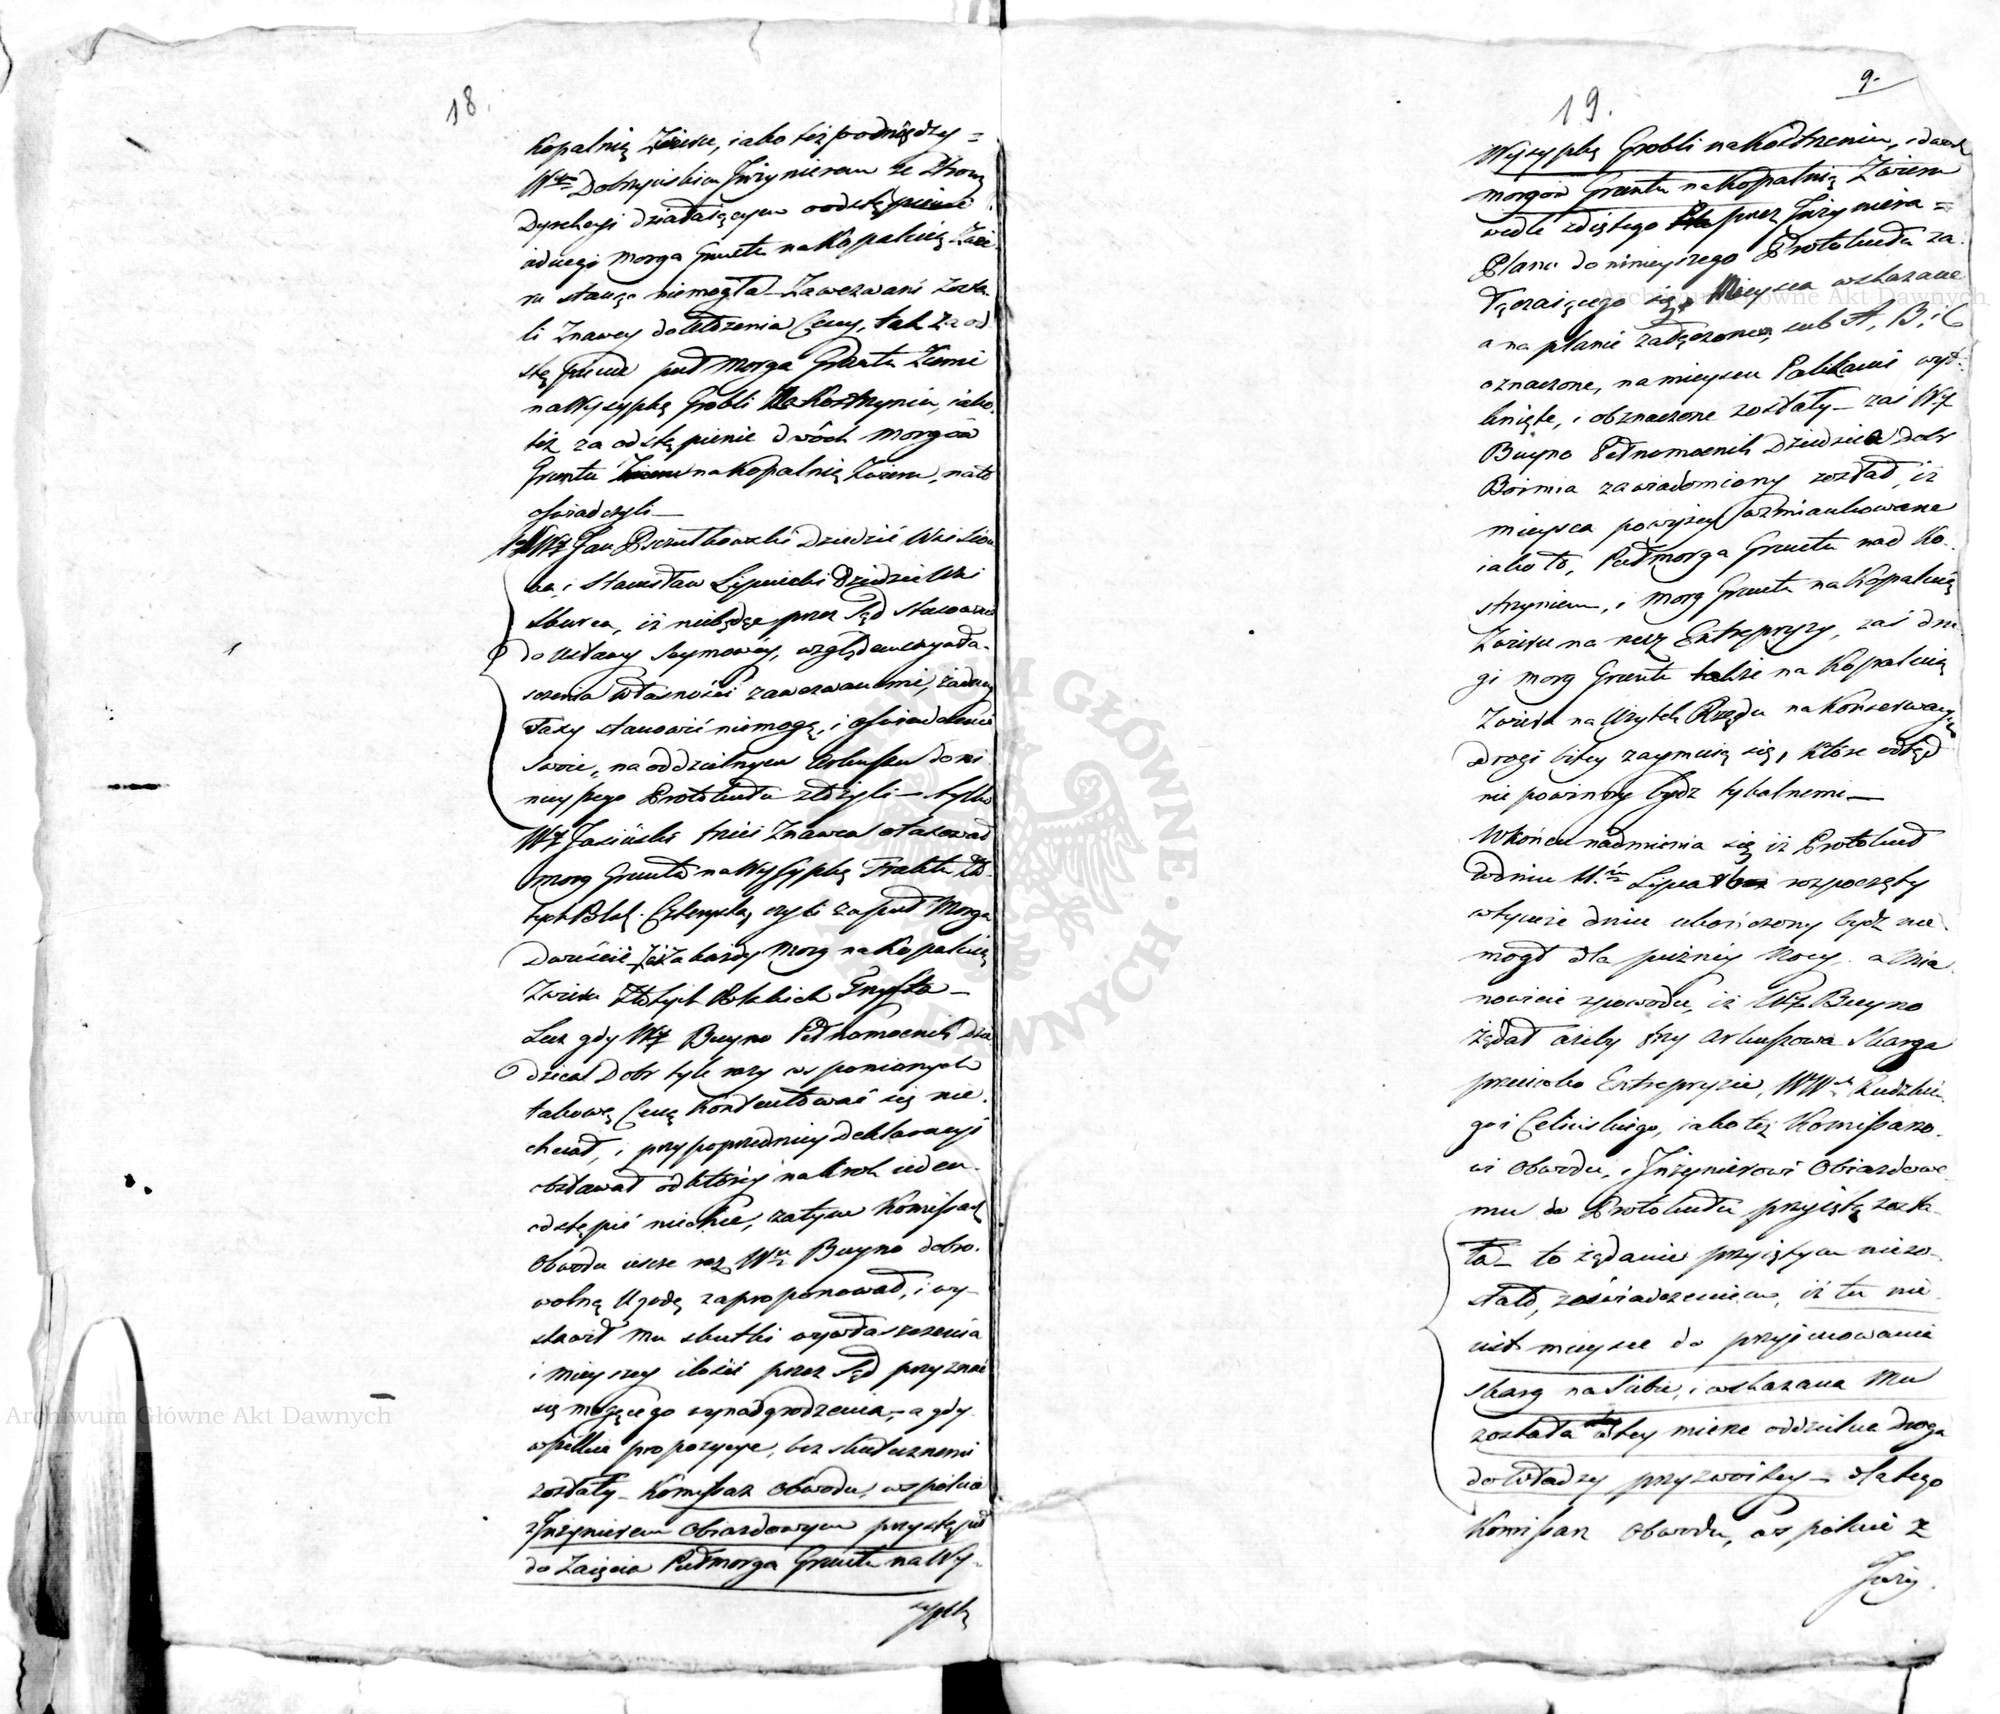 18.
Kopalnią Żwiru, iako też podrzędzy=
Wym Dobrzyńskim Inżynierem ze Strony
Dyrekcyi działaiącym o odstąpienie
iednego Morga Gruntu na Kopalnią Żwi-
ru stanąć niemogła – Zawezwani zosta-
li Znawcy do Ustalenia Ceny, tak za od-
stąpienie puł Morga Gruntu Ziemi
na Wysypkę Grobli Na Kostrzyniu, iako
też za odstąpienie dwóch Morgów
Gruntu na Kopalnią Żwiru, na to
oświadczyli –
WJ Jan Pszczułkowski Dziedzic Wsi
i Stanisław Lipnicki Dziedzic Wsi
Skurca, iż niebędąc przez Sąd stosownie
do Ustawy Seymowéy, względem wywła-
szczenia Własności zawezwanemi, żadnéy
Taxy stanowić niemogą, i oświadczenie
swoie, na oddzielnym Arkuszu do ni-
nieyszego Protokułu złożyli – tylko
WJ Jasiński trzeci Znawca otaxował
morg Gruntu na Wysypkę Traktu Zło-
tych Polsk. Czterysta, czyli za puł Morga
Dwieście zaś Za każdy Morg na Kopalnią
Żwiru Złotych Polskich Trzysta –
Lecz gdy WJ Buyno Pełnomocnik Dzie-
dzica Dobr tyle razy wspomionych
takową Ceną Kontentować się nie
chciał, i przy poprzedniéy Deklaracyi
obstawał od któréy na krok ieden
odstąpić niechce, zatym Kommissarz
Obwodu ieszcze raz Wmu Buyno dobro-
wolną Ugodę zaproponował, i wy-
stawił mu skutki wywłaszczenia
i mnieyszéy ilości przez Sąd przyznać
się mogącego wynadgrodzenia, – a gdy
wszelkie propozycye, bez skutecznemi
zostały – Kommissarz Obwodu, wspólnie
z Inżynierem Obiazdowym przystąpił
do Zaięcia Pułmorga Gruntu na Wy-
sypkę
9.
19.
Wysypkę Grobli na Kostrzeniu, i dwóch
morgów Gruntu na Kopalnią Żwiru
wedle zdiętego przez Inżyniera=
Planu do ninieyszego Protokułu za-
łączaiącego się, Mieysca wskazane
a na planie załączonem, sub A, B, i C
oznaczone, na mieyscu Palikami wyt-
knięte, i obznaczone zostały – zaś WJ
Buyno Pełnomocnik Dziedzica dobr
Boimia zawiadomiony został, iż
mieysca powyżéy wzmiankowane
iako to, Pułmorga Gruntu nad Ko-
strzyniem, i Morg Gruntu na Kopalnią
Żwiru na rzecz Entrepryzy, zaś dru-
gi morg Gruntu także na Kopalnią
Żwiru na Użytek Rządu na Konserwacyą
drogi bitey zaymuią się, które odtąd
nie powinny bydź tykalnemi –
W końcu nadmienia się iż Protokuł
w dniu 11.m Lipca rozpoczęty
w tymże dniu ukończony bydź nie
mógł dla puźnéy Nocy, a Mia-
nowicie zpowodu, iż WJ Buyno
żądał ażeby trzy Arkuszowa Skarga
przeciwko Entrepryzie, WWch Rudzkie-
go i Celińskiego, iako też Kommissarzo-
wi Obwodu, i Inżynierowi Obiazdowe-
mu do Protokułu przyiętą zosta-
ła – to żądanie przyiętym niezo-
stało, z oświadczeniem, iż tu nie
iest mieysce do przyimowania
skarg na Siebie, i wskazana Mu
została w tey mierze oddzielna droga
do Władzy przyzwoitéy – dlatego
Kommissarz Obwodu, wspólnie z
Inży-
Archiwum Główne Akt Dawnych
Archiwum Główne Akt Dawnych